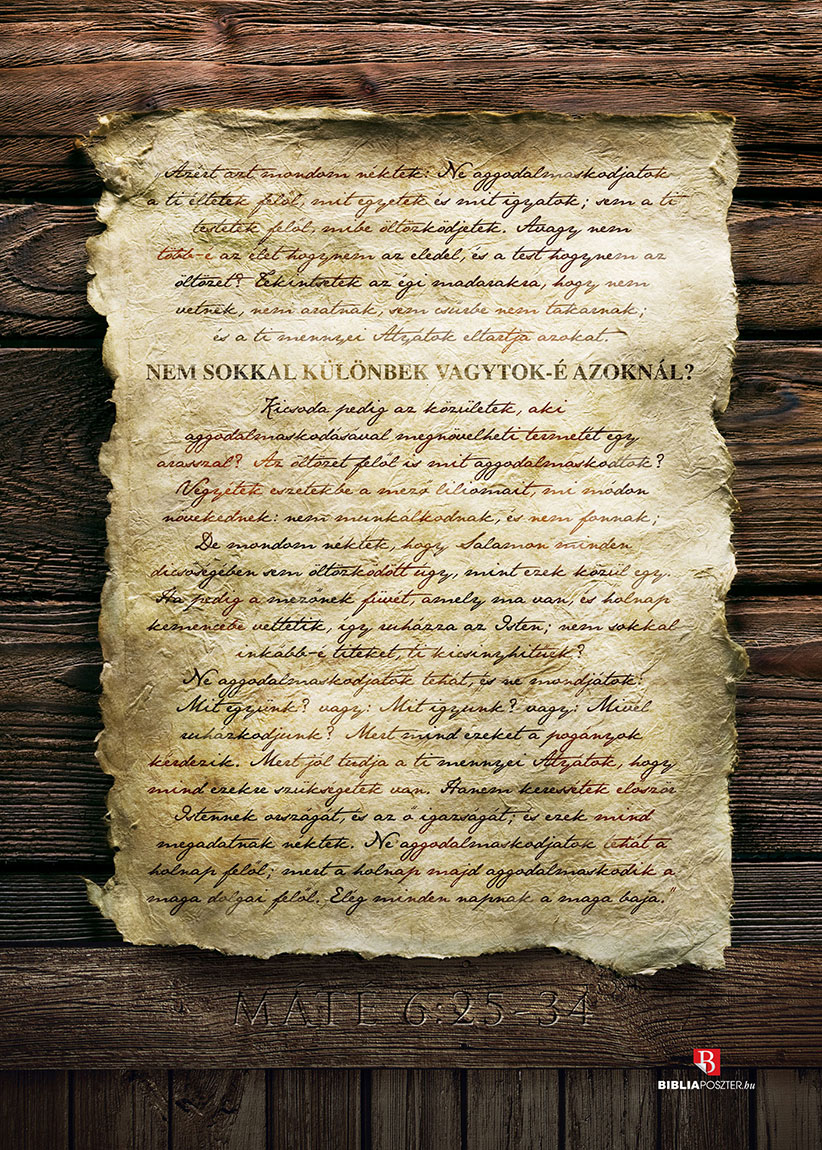 Azért azt mondom néktek: Ne aggodalmaskodjatok
a ti éltetek felől, mit egyetek és mit igyatok; sem a ti
testetek felől, mibe öltözködjetek. Avagy nem
több-é az élet hogynem az eledel, és a test hogynem az
öltözet? Tekintsetek az égi madarakra, hogy nem
vetnek, nem aratnak, sem csűrbe nem takarnak;
és a ti mennyei Atyátok eltartja azokat.
NEM SOKKAL KÜLÖNBEK VAGYTOK-É AZOKNÁL?
Kicsoda pedig az közületek, aki
aggodalmaskodásával megnövelheti termetét egy
arasszal? Az öltözet felől is mit aggodalmaskodtok?
Vegyétek eszetekbe a mező liliomait, mi módon
növekednek: nem munkálkodnak, és nem fonnak;
De mondom néktek, hogy Salamon minden
dicsőségében sem öltözködött úgy, mint ezek közül egy.
Ha pedig a mezőnek füvét, amely ma van, és holnap
kemencébe vettetik, így ruházza az Isten; nem sokkal
inkább-é titeket, ti kicsinyhitűek?
Ne aggodalmaskodjatok tehát, és ne mondjátok:
Mit együnk? vagy: Mit igyunk? vagy: Mivel
ruházkodjunk? Mert mind ezeket a pogányok
kérdezik. Mert jól tudja a ti mennyei Atyátok, hogy
mind ezekre szükségetek van. Hanem keressétek először
Istennek országát, és az ő igazságát; és ezek mind
megadatnak néktek. Ne aggodalmaskodjatok tehát a
holnap felől; mert a holnap majd aggodalmaskodik a
maga dolgai felől. Elég minden napnak a maga baja."
MÁTÉ 6:25-34
B
BIBLIAPOSZTER.hu